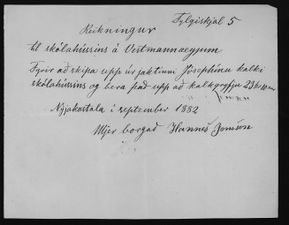 Fylgiskjal 5
Reikningur
til skólahússins á Vestmannaeyjum
Fyrir að skipa upp úr jaktinni Jósephínu kalki
skólahússins og bera það upp að kalkgryfju 23 kr
Nýjakastala í september 1882
Mjer borgað Hannes Jónsson